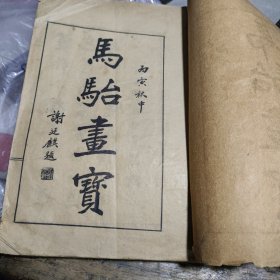 丙寅秋中
馬駘畫寶
謝廷麒題